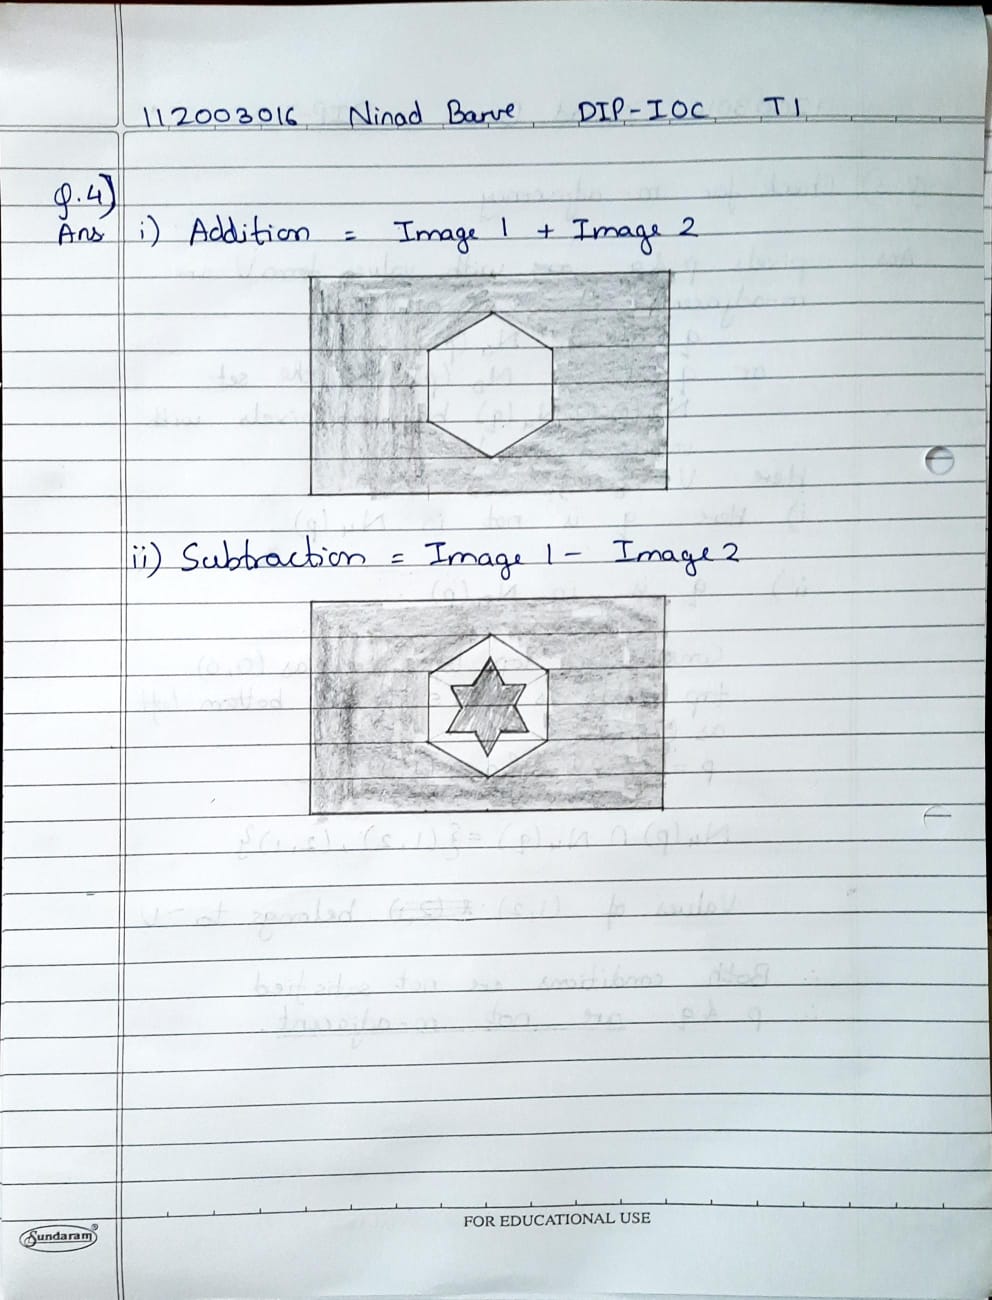 112003016 Ninad Barve DIP-IOC T1
Q.4)
Ans i) Addition = Image 1 + Image 2
ii) Subtraction = Image 1 - Image 2
FOR EDUCATIONAL USE
Sundaram®